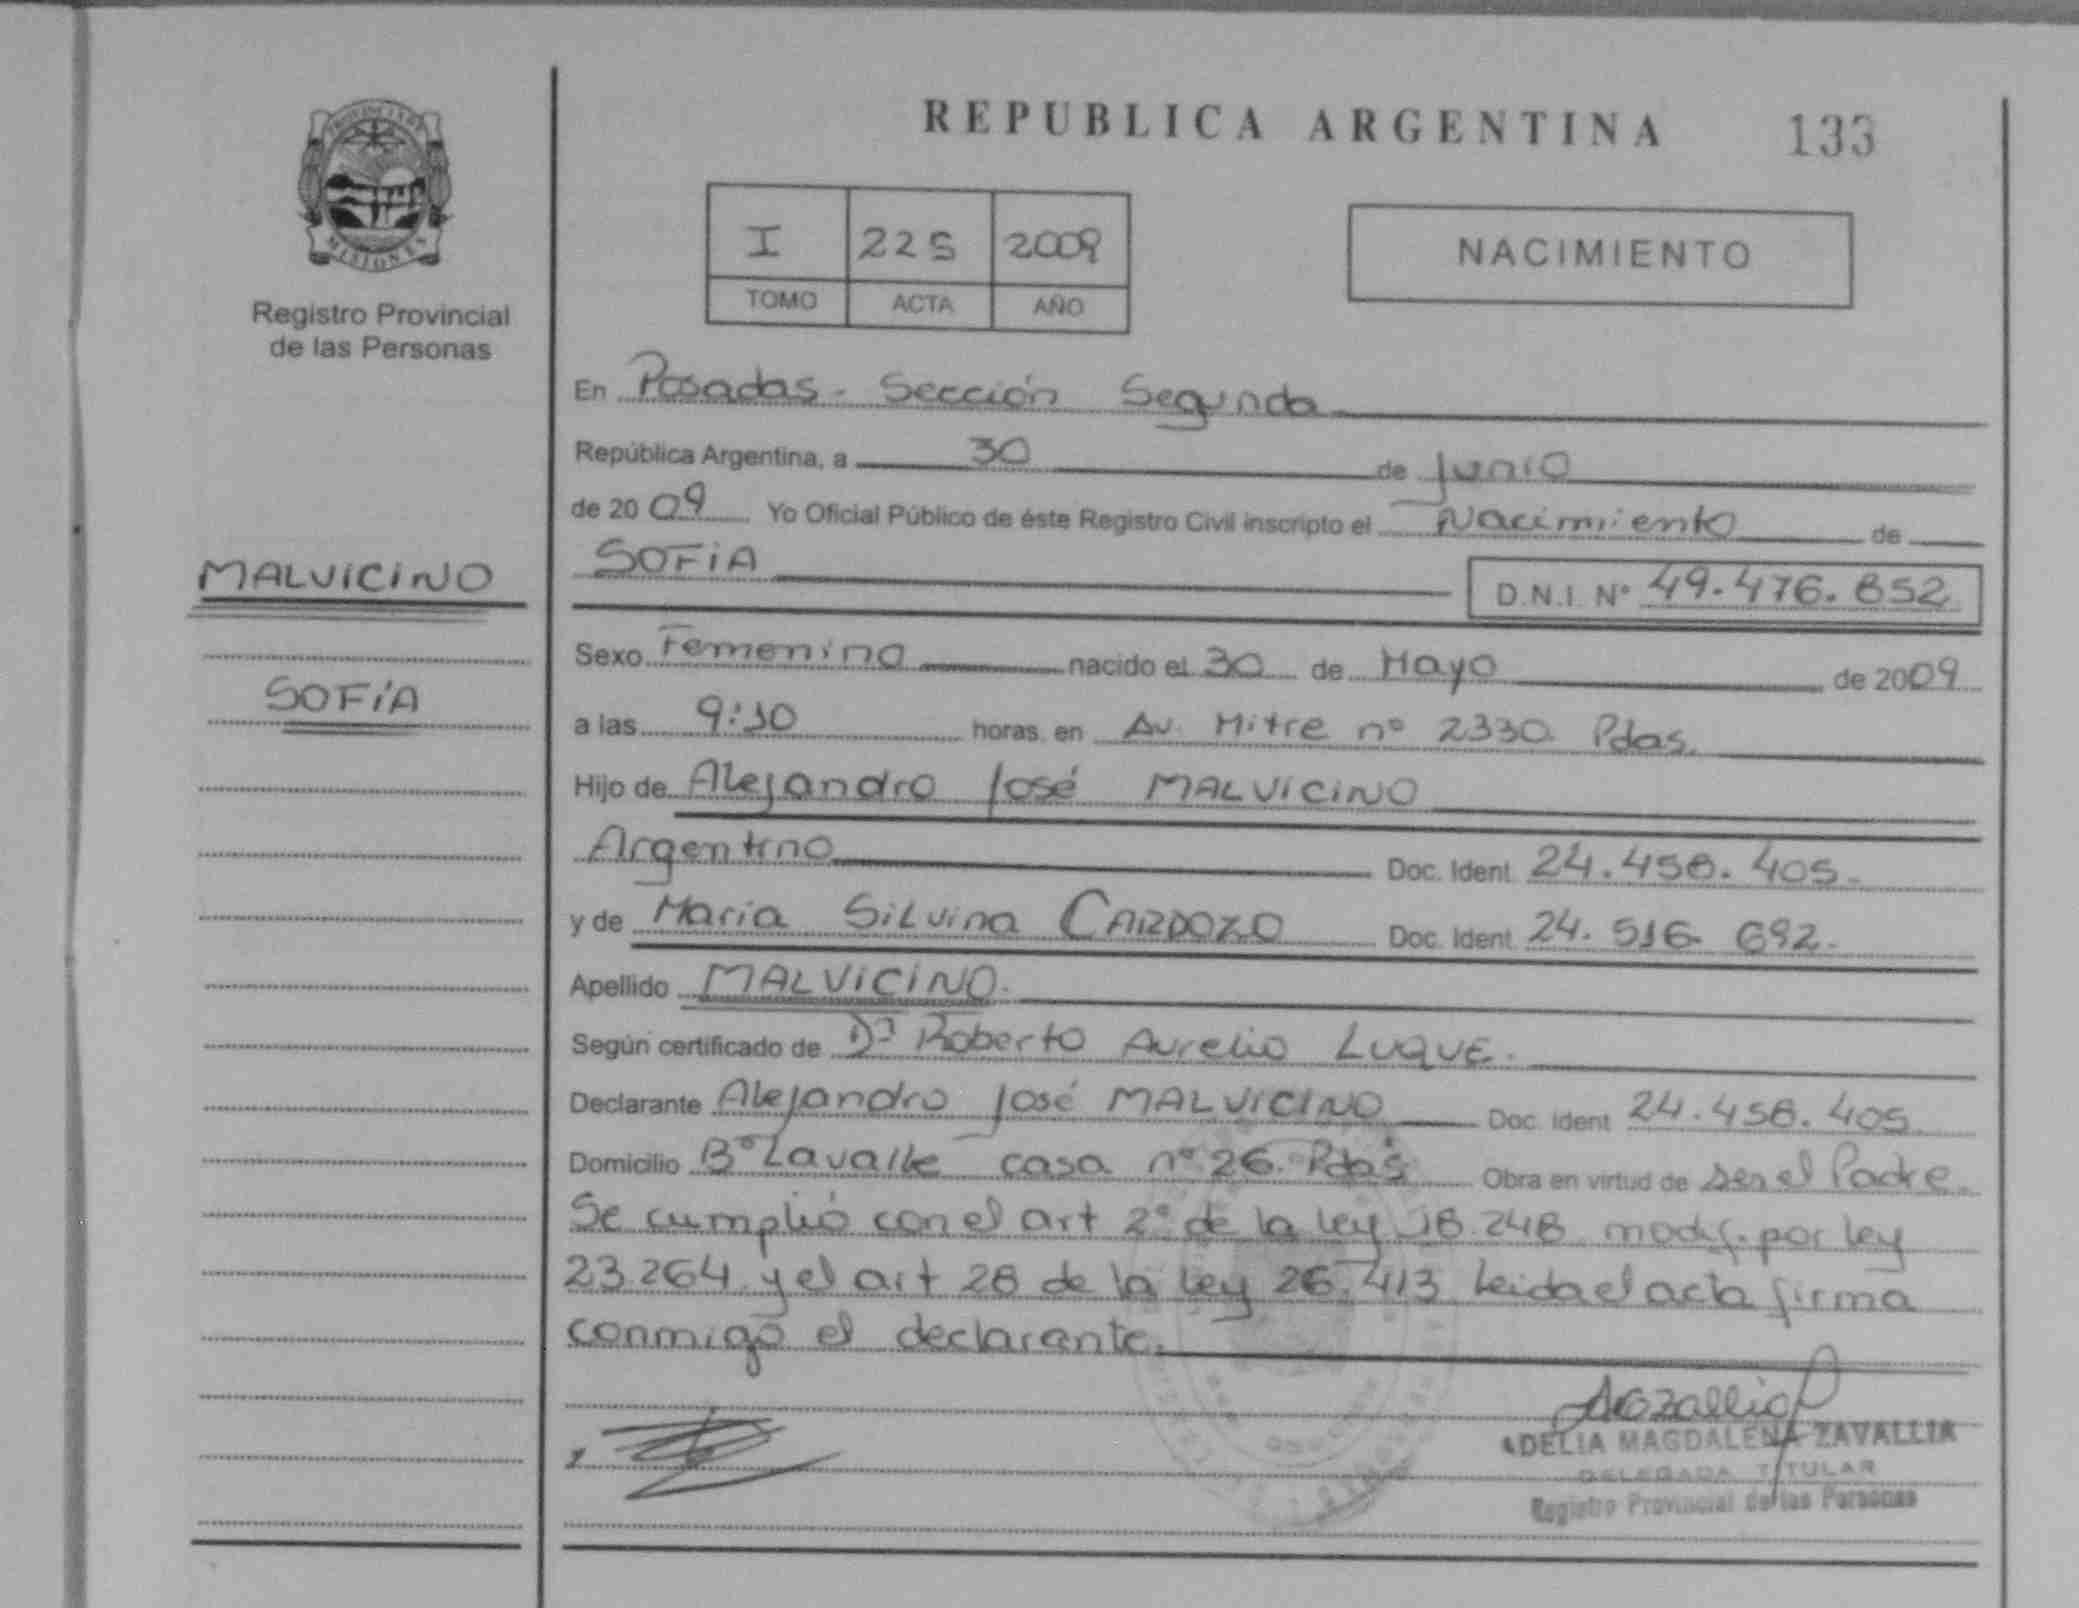 REPUBLICA ARGENTINA 133
PROVINCIA DE
MISIONES
Registro Provincial
de las Personas
I 225 2009
TOMO ACTA AÑO
NACIMIENTO
En Posadas - Sección Segunda
República Argentina, a 30 de Junio
de 2009 Yo Oficial Público de éste Registro Civil inscripto el Nacimiento de
SOFiA D.N.I. Nº 49.476.852
MALVICINO
SOFíA
Sexo Femenino nacido el 30 de Mayo de 2009
a las 9:30 horas. en Av. Mitre nº 2330 Pdas.
Hijo de Alejandro José MALVICINO
Argentino Doc. Ident. 24.458.405.-
y de Maria Silvina CARDOZO Doc. Ident. 24.516.692.-
Apellido MALVICINO.
Según certificado de Dr Roberto Aurelio LUQUE.
Declarante Alejandro José MALVICINO Doc. Ident. 24.458.405.
Domicilio Bº Lavalle casa nº 26. Pdas Obra en virtud de ser el Padre.
Se cumplió con el art 2º de la ley 18.248 modif. por ley
23.264 y el art 28 de la ley 26.413 Leida el acta firma
conmigo el declarante.
DELIA MAGDALENA ZAVALLIA
DELEGADA TITULAR
Registro Provincial de las Personas